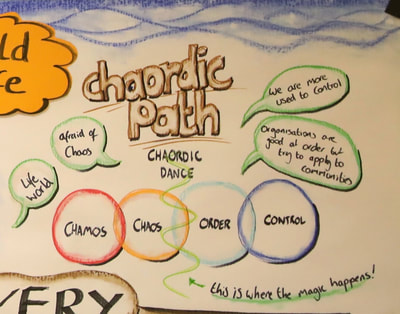 ld
e
chaordic
path
CHAORDIC
DANCE
we are more
used to control
afraid of
Chaos
Organisations are
good at order but
try to apply to
communities
Life
world
CHAMOS
CHAOS
ORDER
CONTROL
this is where the magic happens!
VERY